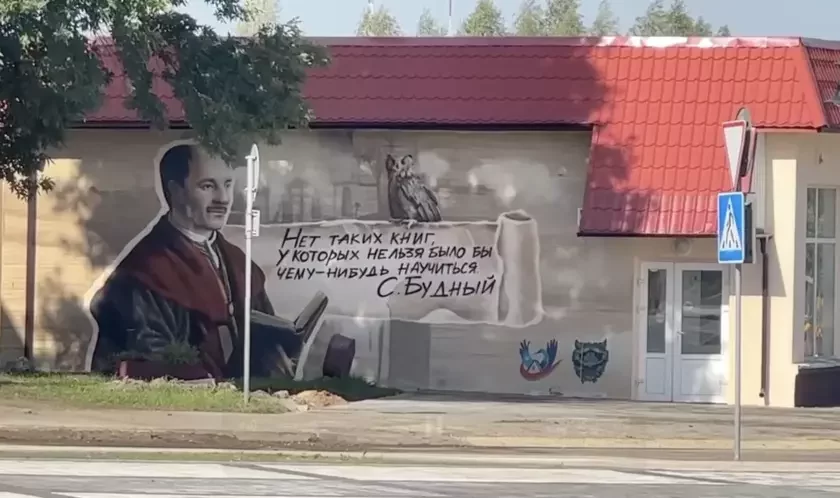 Нет таких книг,
у которых нельзя было бы
чему-нибудь научиться
С. Будный